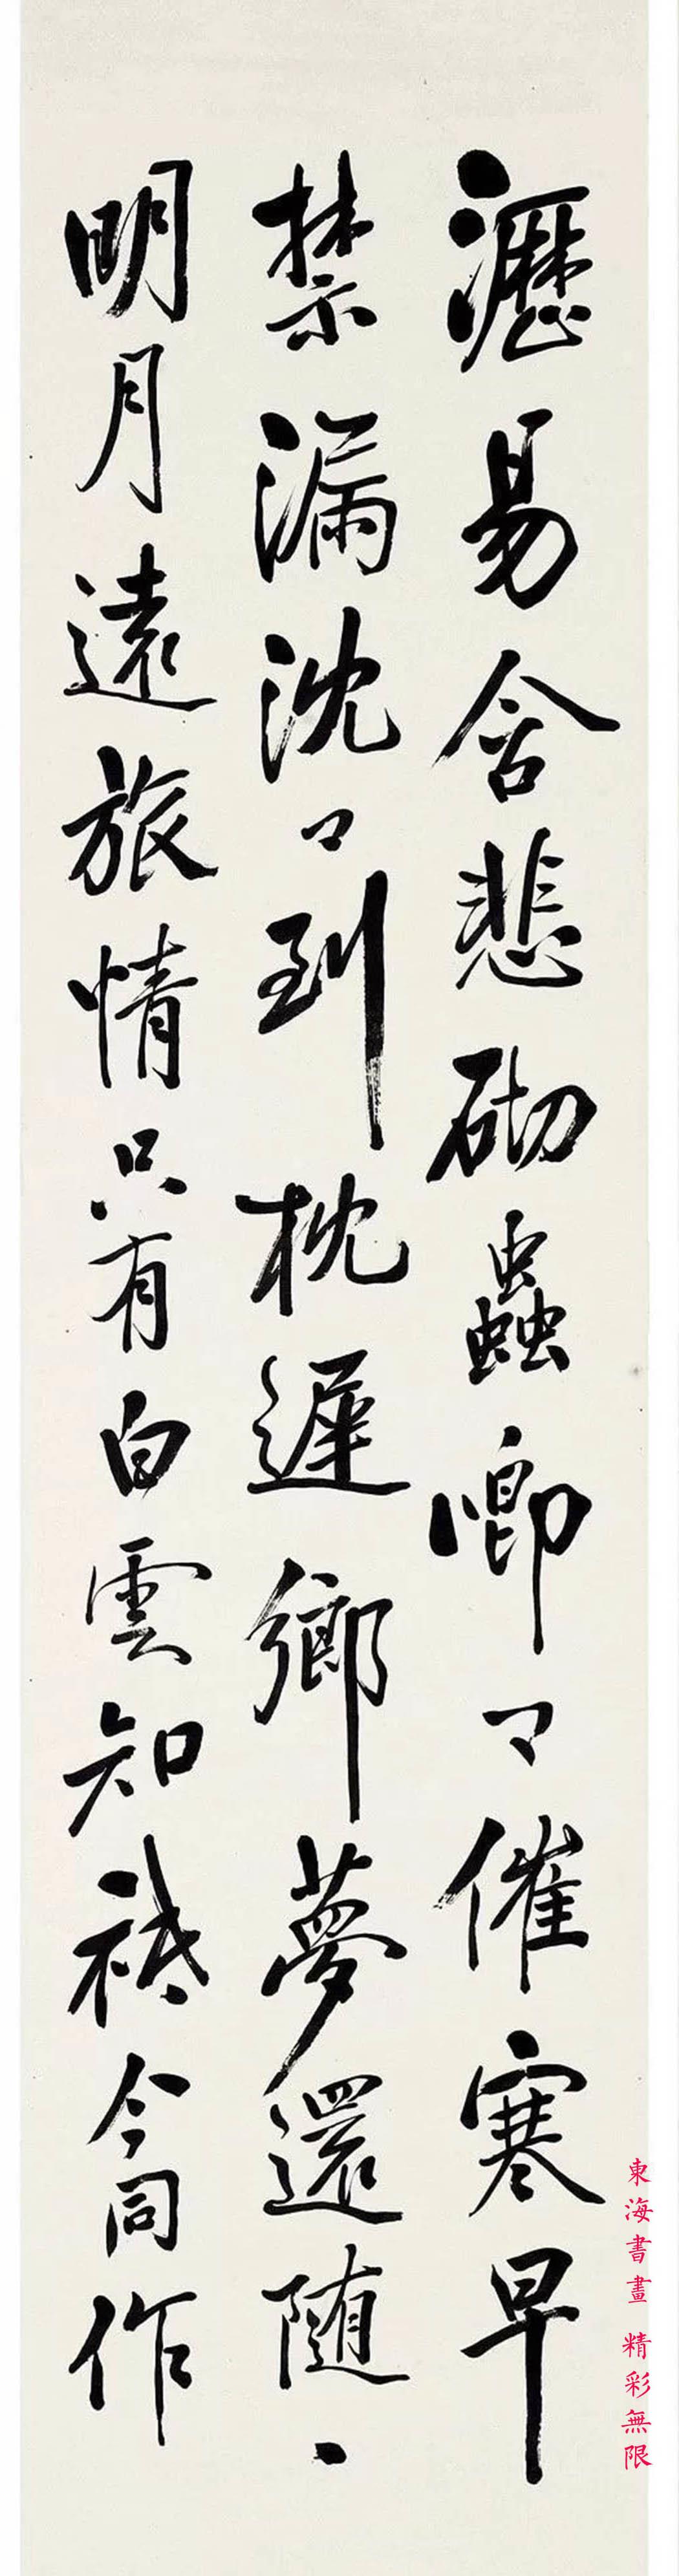 瀝易含悲砌蟲唧々催寒早
禁漏沈々到枕遲鄉夢還隨
明月遠旅情只有白雲知祗今同作
東海書畫 精彩無限